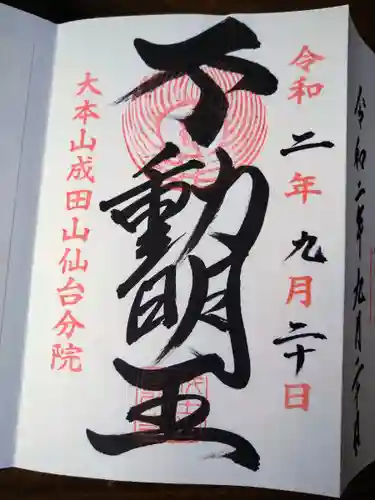 令和二年九月二十日
令和二年九月二十日
不動明王
大本山成田山仙台分院